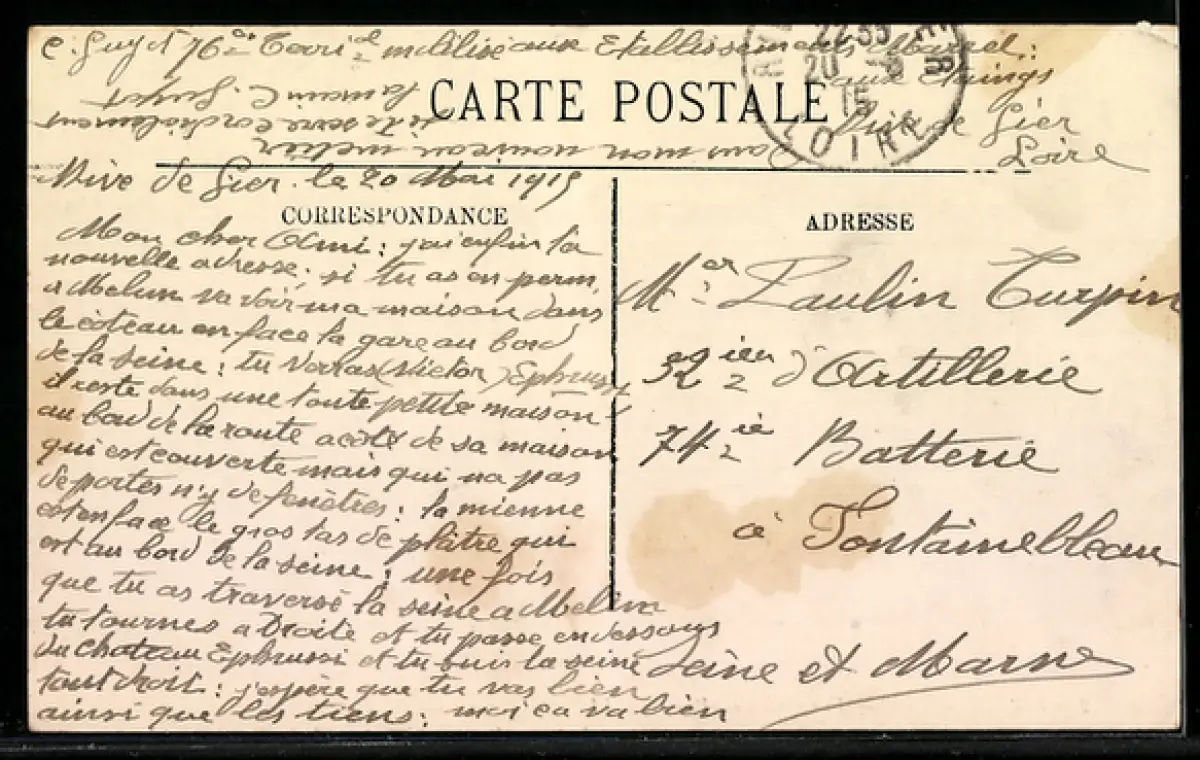 C. Guyot 76e Terri al mobilisé aux Etablissements Marrel:
aux Etaings
Rive de Gier
Loire
CARTE POSTALE
22-35
20 -5
15
LOIRE
dans mon nouveau métier
je te serre cordialement
la main C. Guyot
Rive de Gier. le 20 Mai 1915
CORRESPONDANCE
Mon cher Ami: j'ai enfin ta
nouvelle adresse; si tu as en perm,
a Melun va voir ma maison dans
le côteau en face la gare au bord
de la seine: tu verras (Victor) Ephrussi
il reste dans une toute petite maison
au bord de la route a côté de sa maison
qui est couverte mais qui na pas
de portes n'y de fenêtres: la mienne
est en face le gros tas de plâtre qui
est au bord de la seine; une fois
que tu as traversé la seine a Melun
tu tournes a Droite et tu passe en dessous
du chateau Ephrussi et tu suis la seine
tout droit: j'espère que tu vas bien
ainsi que les tiens: moi ca va bien
ADRESSE
Mer Paulin Turpin
32ien d'Artillerie
74ie Batterie
à Fontainebleau
Seine et Marne